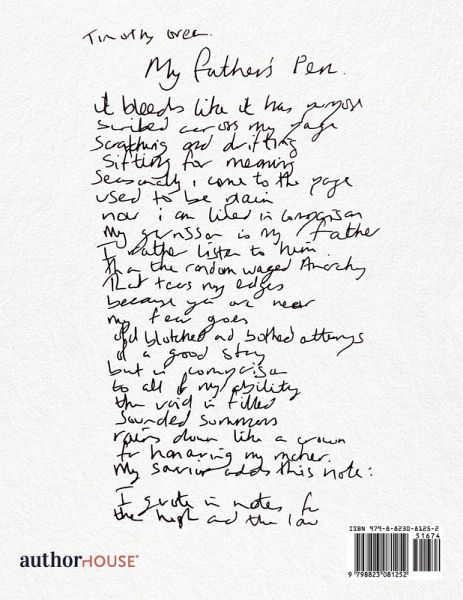 Timothy Green.
My Father's Pen.
it bleeds like it has purpose
scribed across my page
Scratching and drifting
Sifting for meaning
Seasonally i come to the page
used to be plain
now i am lined in comparison
My is my father
I rather listen to him.
than the random waged Anarchy
That tears my edges
because you are near
my fear goes
old blotched and botched attempts
of a good story
but in comparison
to all of my ability
the void is filled
Sounded summons
rains down like a crown
for honoring my maker.
My savior adds this note:
I quote in notes for
the high and the low
authorHOUSE®
ISBN 979-8-8230-8125-2
51674
9 798823 081252